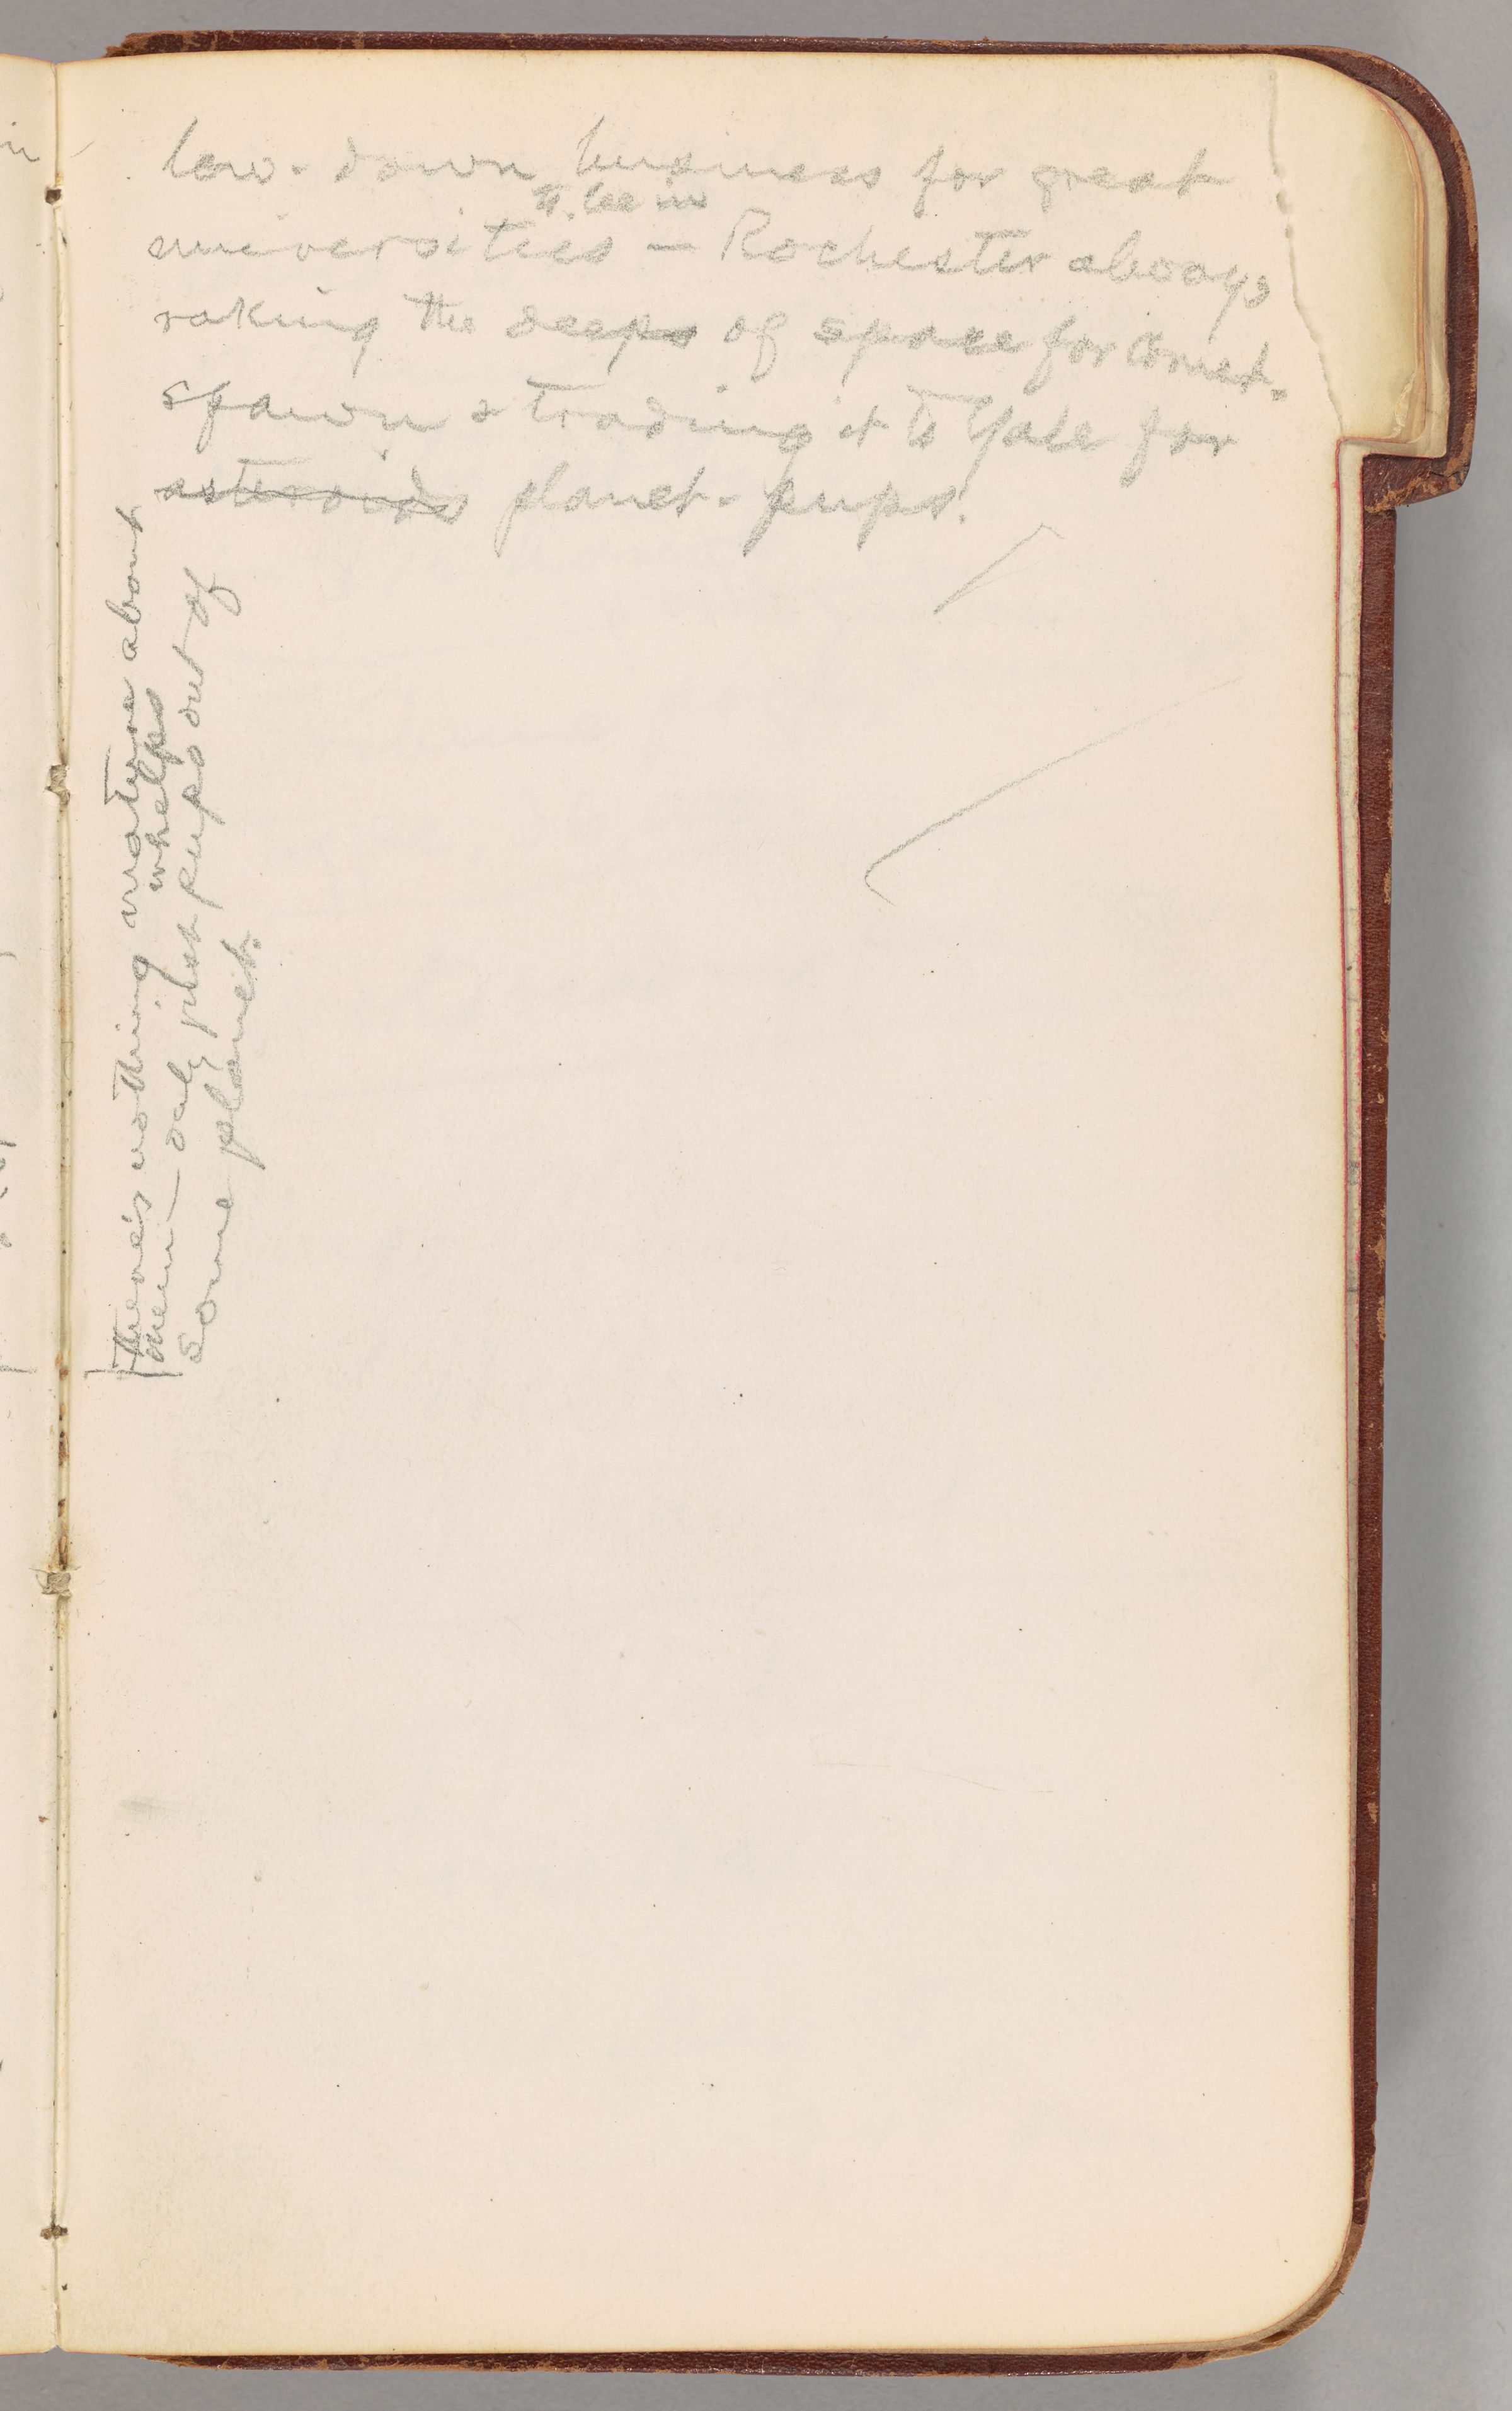 low-down business for great
to be in
universities — Rochester always
raking the deeps of space for comet-
spawn & trading it to Yale for
asteroids planet-pups.
There's nothing mature about
whelps
them — only just pups out of
some planet.